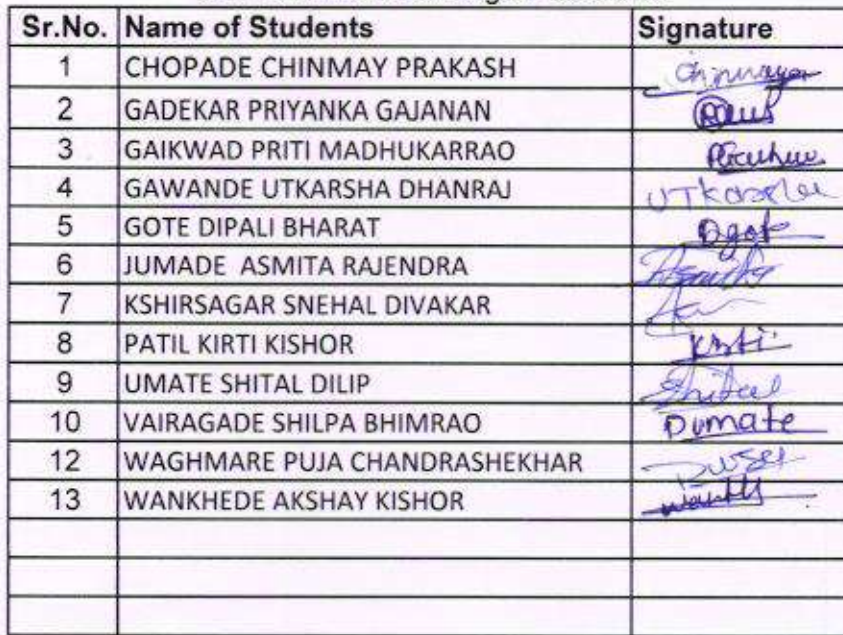 Sr.No. Name of Students Signature
1 CHOPADE CHINMAY PRAKASH Chinmay
2 GADEKAR PRIYANKA GAJANAN
3 GAIKWAD PRITI MADHUKARRAO
4 GAWANDE UTKARSHA DHANRAJ
5 GOTE DIPALI BHARAT Dgote
6 JUMADE ASMITA RAJENDRA
7 KSHIRSAGAR SNEHAL DIVAKAR
8 PATIL KIRTI KISHOR Kirti
9 UMATE SHITAL DILIP Shital
10 VAIRAGADE SHILPA BHIMRAO Dumate
12 WAGHMARE PUJA CHANDRASHEKHAR
13 WANKHEDE AKSHAY KISHOR